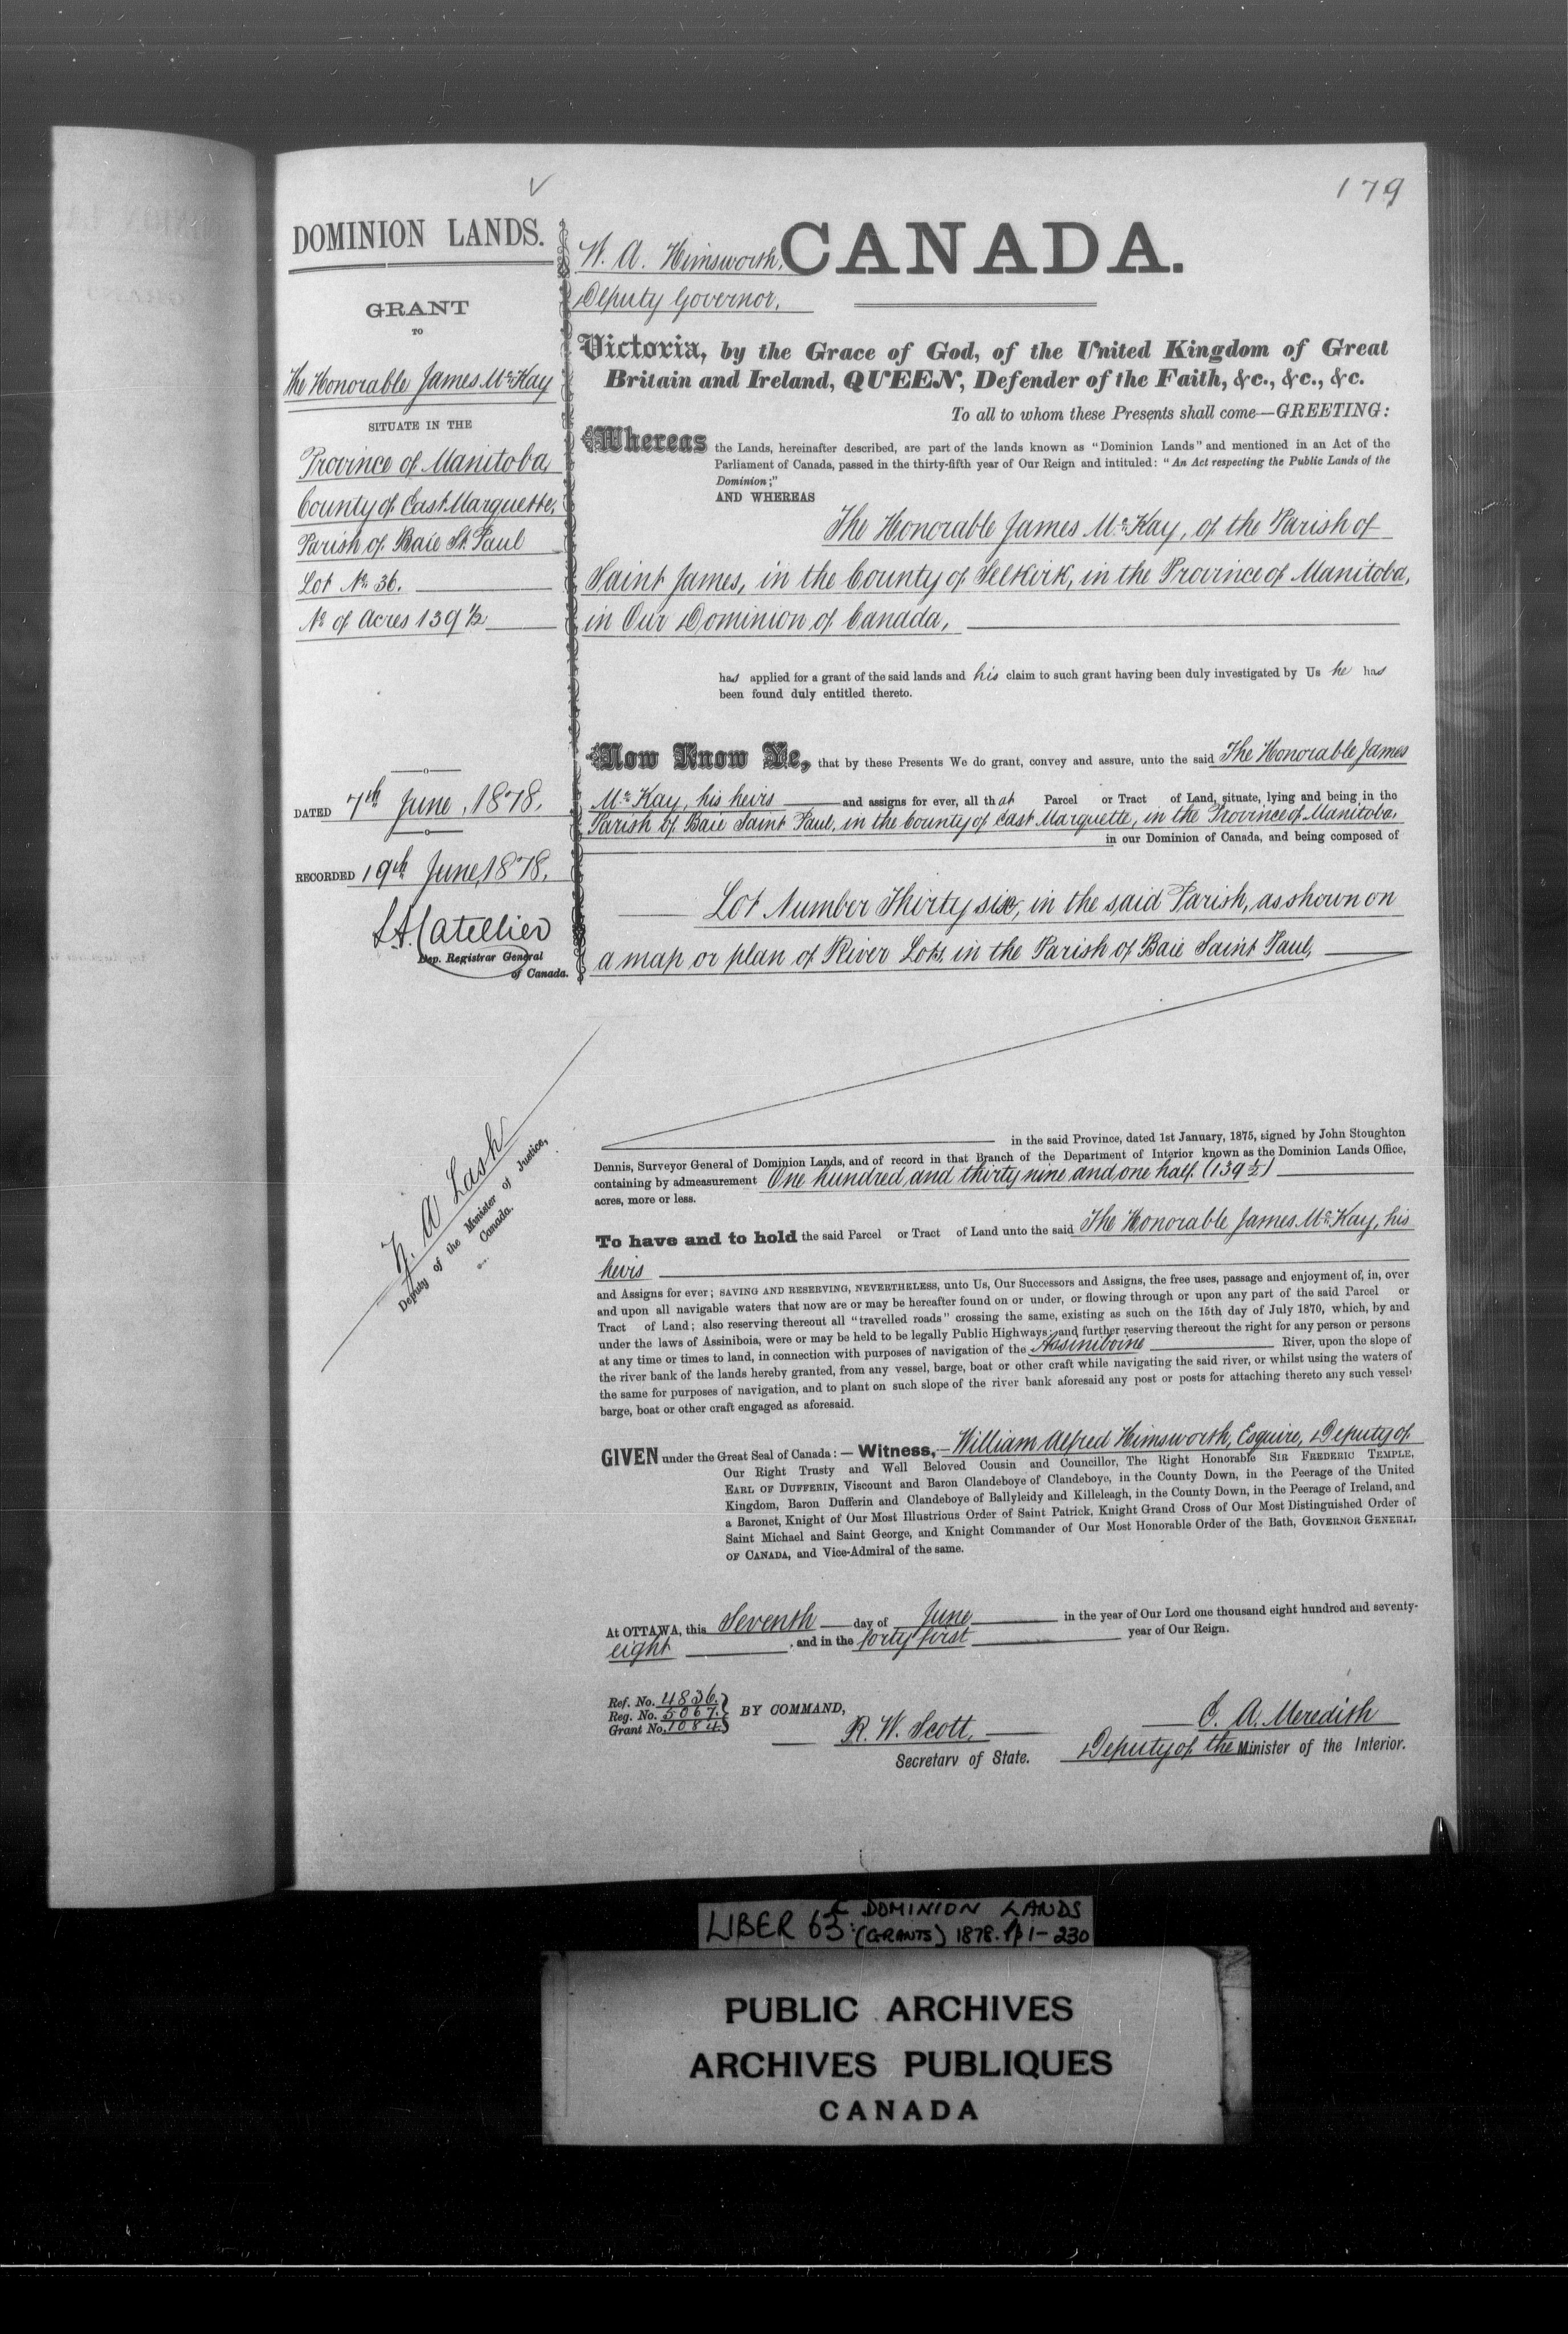 179
DOMINION LANDS.
GRANT
TO
The Honorable James McKay
SITUATE IN THE
Province of Manitoba,
County of East Marquette,
Parish of Baie St. Paul
Lot No. 36.
No of Acres 139 ½
DATED 7th June, 1878.
RECORDED 19th June, 1878.
L. A. Catellier
Dep. Registrar General
of Canada.
Z. A. Lash
Deputy of the Minister of Justice,
Canada.
W. A. Himsworth, CANADA.
Deputy Governor.
Victoria, by the Grace of God, of the United Kingdom of Great
Britain and Ireland, QUEEN, Defender of the Faith, &c., &c., &c.
To all to whom these Presents shall come—GREETING:
Whereas the Lands, hereinafter described, are part of the lands known as "Dominion Lands" and mentioned in an Act of the
Parliament of Canada, passed in the thirty-fifth year of Our Reign and intituled: "An Act respecting the Public Lands of the
Dominion;"
AND WHEREAS
The Honorable James McKay, of the Parish of
Saint James, in the County of Selkirk, in the Province of Manitoba,
in Our Dominion of Canada,
has applied for a grant of the said lands and his claim to such grant having been duly investigated by Us he has
been found duly entitled thereto.
Now Know Ye, that by these Presents We do grant, convey and assure, unto the said The Honorable James
McKay, his heirs and assigns for ever, all that Parcel or Tract of Land, situate, lying and being in the
Parish of Baie Saint Paul, in the County of East Marquette, in the Province of Manitoba,
in our Dominion of Canada, and being composed of
Lot Number Thirty six, in the said Parish, as shown on
a map or plan of River Lots, in the Parish of Baie Saint Paul,
in the said Province, dated 1st January, 1875, signed by John Stoughton
Dennis, Surveyor General of Dominion Lands, and of record in that Branch of the Department of Interior known as the Dominion Lands Office,
containing by admeasurement One hundred and thirty nine and one half. (139 ½)
acres, more or less.
To have and to hold the said Parcel or Tract of Land unto the said The Honorable James McKay, his
heirs
and Assigns for ever; SAVING AND RESERVING, NEVERTHELESS, unto Us, Our Successors and Assigns, the free uses, passage and enjoyment of, in, over
and upon all navigable waters that now are or may be hereafter found on or under, or flowing through or upon any part of the said Parcel or
Tract of Land; also reserving thereout all "travelled roads" crossing the same, existing as such on the 15th day of July 1870, which, by and
under the laws of Assiniboia, were or may be held to be legally Public Highways; and further reserving thereout the right for any person or persons
at any time or times to land, in connection with purposes of navigation of the Assiniboine River, upon the slope of
the river bank of the lands hereby granted, from any vessel, barge, boat or other craft while navigating the said river, or whilst using the waters of
the same for purposes of navigation, and to plant on such slope of the river bank aforesaid any post or posts for attaching thereto any such vessel,
barge, boat or other craft engaged as aforesaid.
GIVEN under the Great Seal of Canada:—Witness,—William Alfred Himsworth, Esquire, Deputy of
Our Right Trusty and Well Beloved Cousin and Councillor, The Right Honorable SIR FREDERIC TEMPLE,
EARL OF DUFFERIN, Viscount and Baron Clandeboye of Clandeboye, in the County Down, in the Peerage of the United
Kingdom, Baron Dufferin and Clandeboye of Ballyleidy and Killeleagh, in the County Down, in the Peerage of Ireland, and
a Baronet, Knight of Our Most Illustrious Order of Saint Patrick, Knight Grand Cross of Our Most Distinguished Order of
Saint Michael and Saint George, and Knight Commander of Our Most Honorable Order of the Bath, GOVERNOR GENERAL
OF CANADA, and Vice-Admiral of the same.
At OTTAWA, this Seventh day of June in the year of Our Lord one thousand eight hundred and seventy-
eight, and in the forty first year of Our Reign.
Ref. No. 4836.
Reg. No. 5067.
Grant No. 1084
BY COMMAND,
R. W. Scott,
Secretary of State.
E. A. Meredith
Deputy of the Minister of the Interior.
LIBER 63: DOMINION LANDS
(GRANTS) 1878. pp 1-230
PUBLIC ARCHIVES
ARCHIVES PUBLIQUES
CANADA